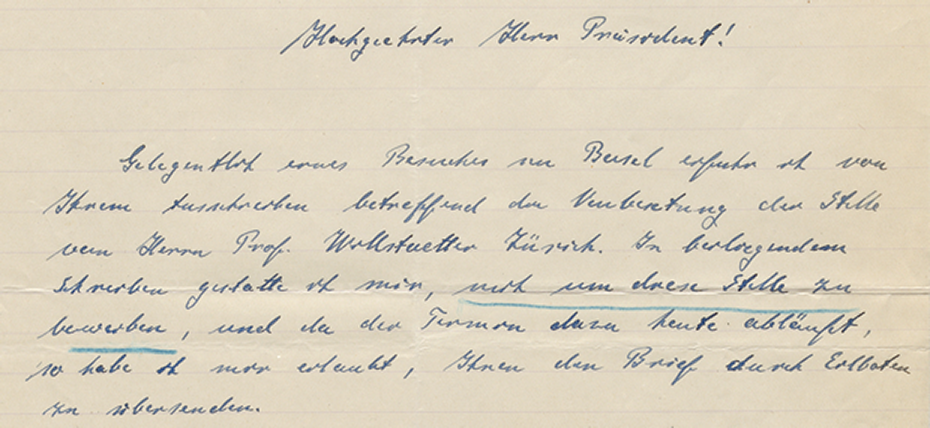 Hochgeehrter Herr Präsident!
Gelegentlich eines Besuches in Basel erfuhr ich von
Ihrem Ausschreiben betreffend die Neubesetzung der Stelle
von Herrn Prof. Willstaetter Zürich. In beiliegendem
Schreiben gestatte ich mir, mich um diese Stelle zu
bewerben, und da der Termin dazu heute abläuft,
so habe ich mir erlaubt, Ihnen den Brief durch Eilboten
zu übersenden.